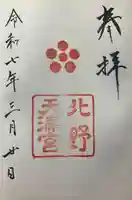 奉拝
北野
天満宮
令和七年三月廿日